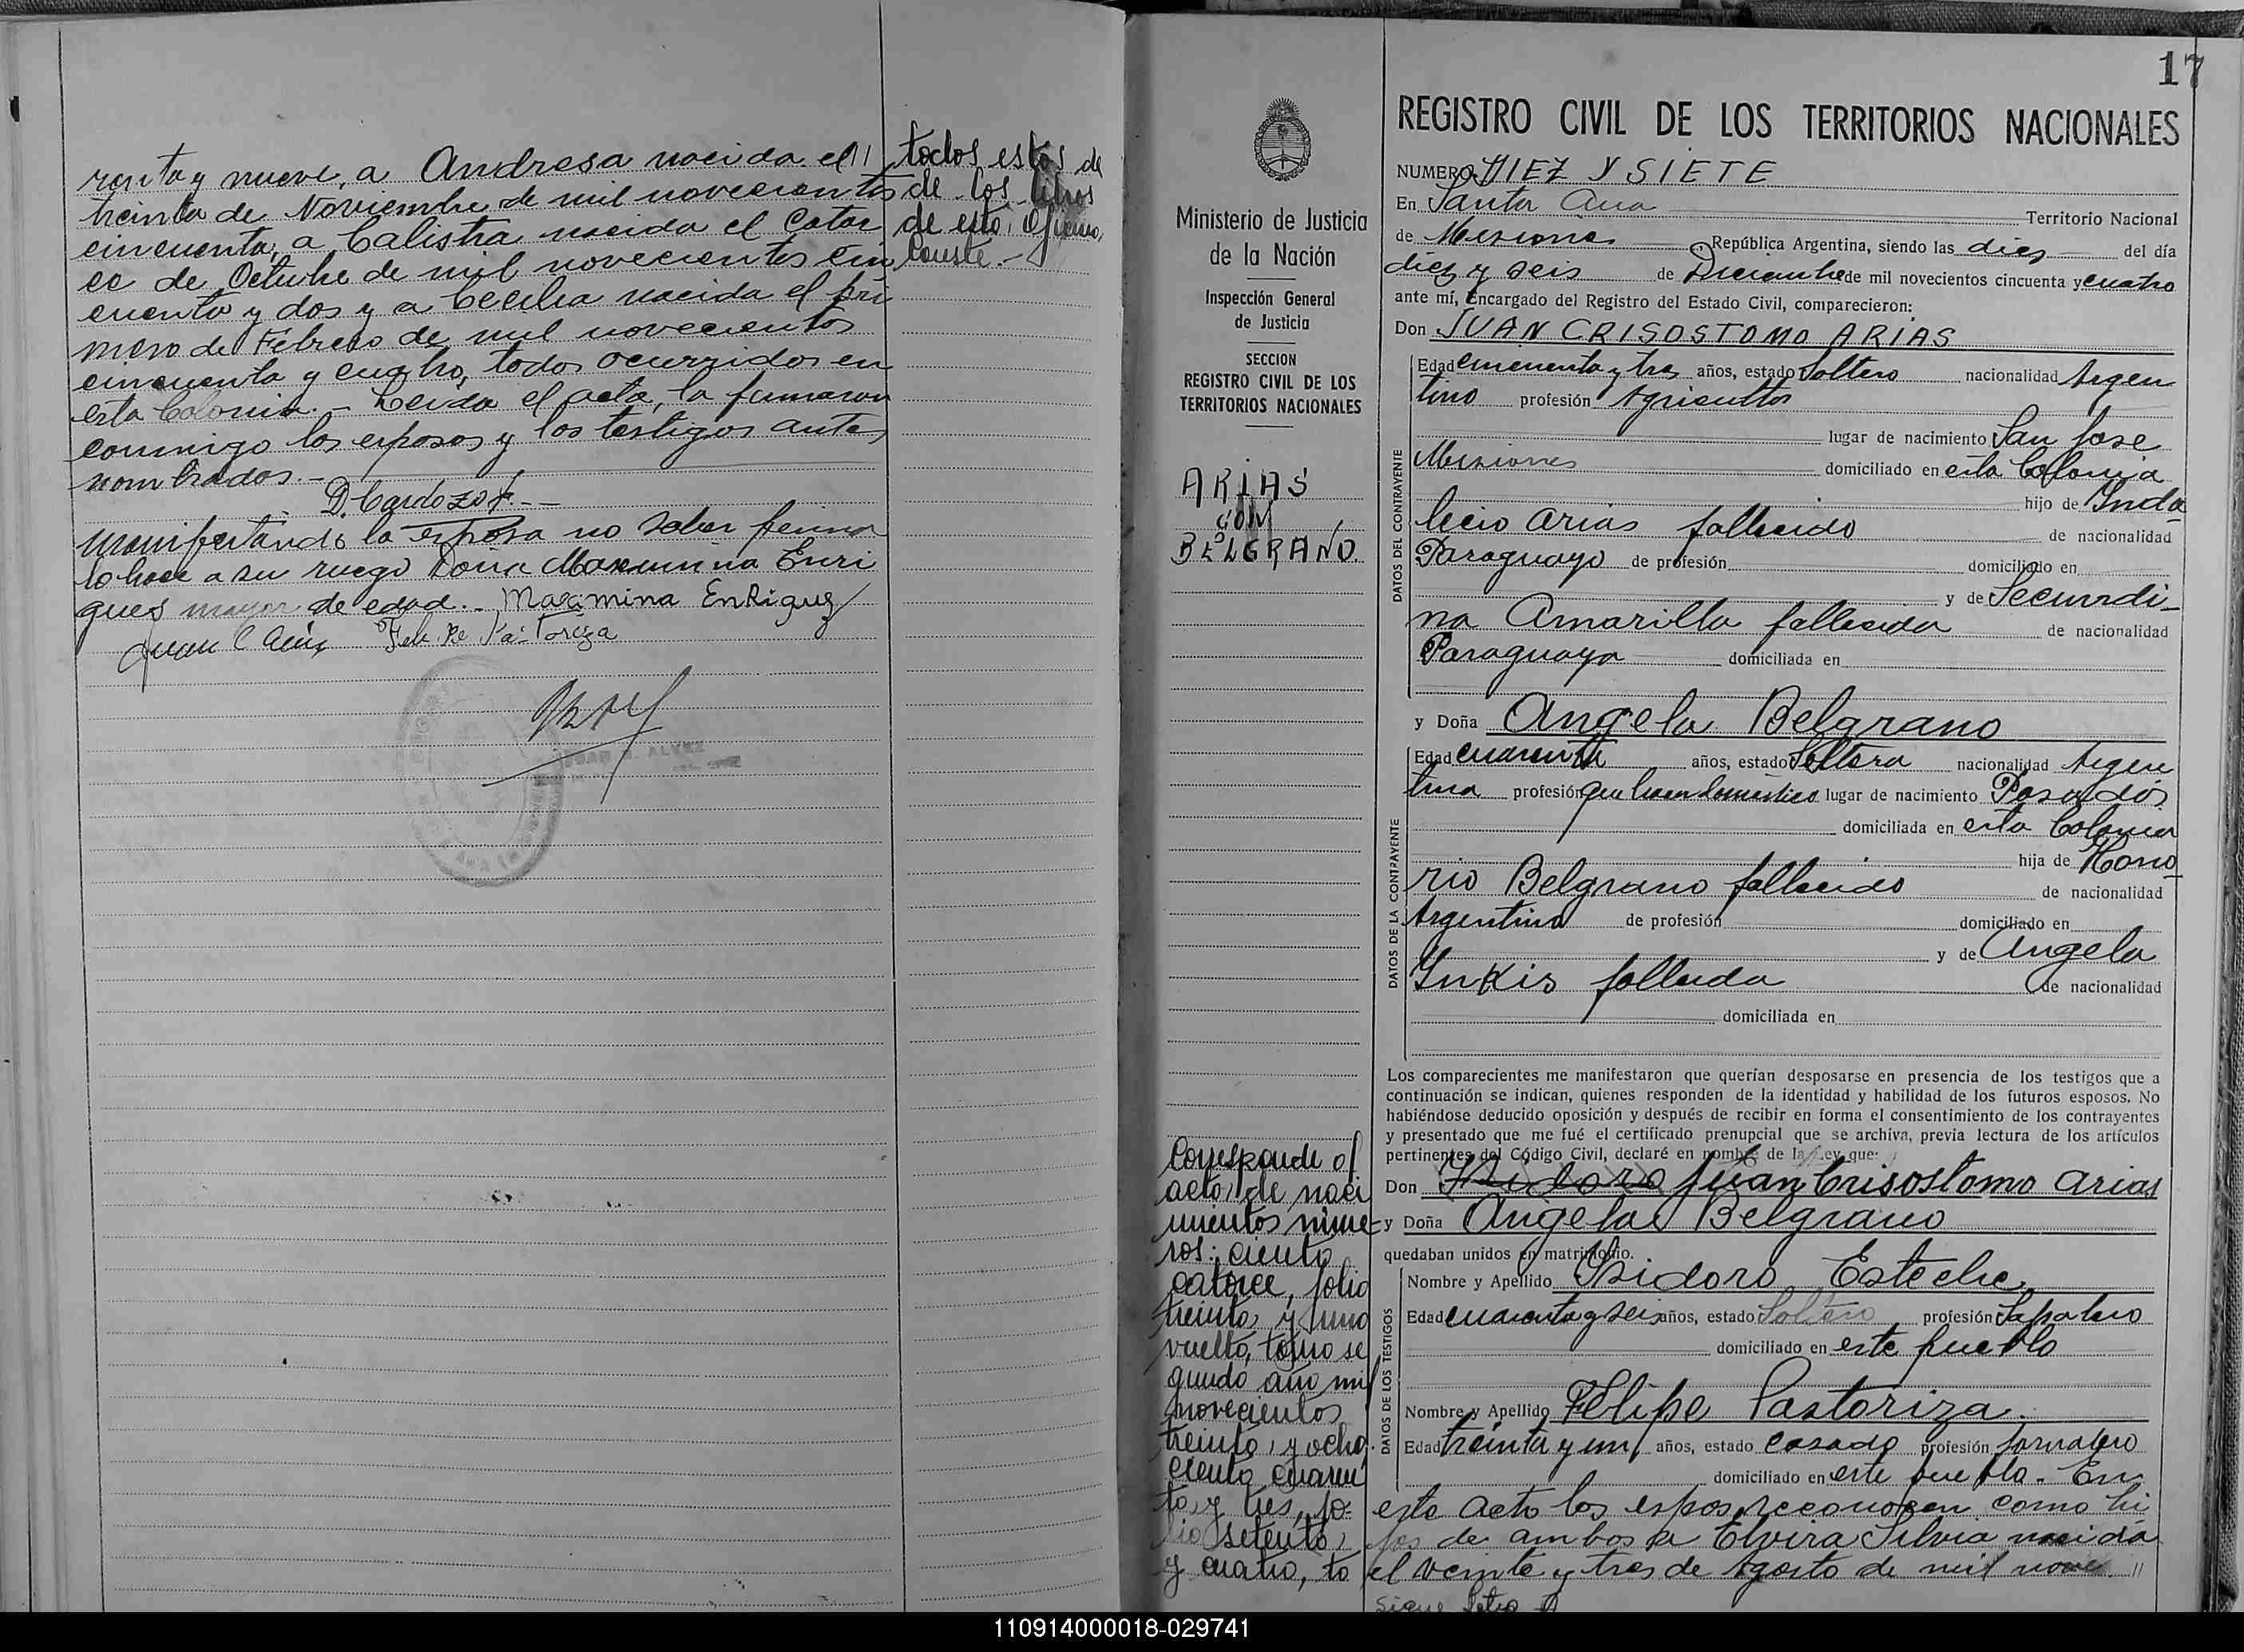 ronta y nueve, a Andresa nacida el //
treinta de Noviembre de mil novecientos
cincuenta, a Calistra nacida el Cator
ce de Octubre de mil novecientos cin
cuenta y dos y a Cecilia nacida el pri
mero de Febrero de mil novecientos
cincuenta y cuatro, todos ocurridos en
esta Colonia.- Leida el acta, la firmaron
conmigo los esposos y los testigos antes
nombrados.-
D. Cardozo
Manifestando la esposa no saber firmar
lo hace a su ruego Doña Maximina Enri
ques mayor de edad.- Maximina Enriquez
Juan C Arias
todos estos de
de los libros
de esta Oficina,
Conste.-
17
Ministerio de Justicia
de la Nación
Inspección General
de Justicia
SECCION
REGISTRO CIVIL DE LOS
TERRITORIOS NACIONALES
ARIAS
CON
BELGRANO
Corresponde al
acta de naci
mientos núme-
ros: ciento
catorce, folio
treinta y uno
vuelto, tomo se
gundo año mil
novecientos
treinta y ocho.
ciento cuaren
ta y tres, fo-
lio setenta
y cuatro, to
REGISTRO CIVIL DE LOS TERRITORIOS NACIONALES
NUMERO DIEZ Y SIETE
En Santa Ana Territorio Nacional
de Misiones República Argentina, siendo las diez del día
diez y seis de Diciembre de mil novecientos cincuenta y cuatro
ante mí, Encargado del Registro del Estado Civil, comparecieron:
Don JUAN CRISOSTOMO ARIAS
DATOS DEL CONTRAYENTE
Edad cincuenta y tres años, estado Soltero nacionalidad Argen
tino profesión Agricultor
lugar de nacimiento San José
Misiones domiciliado en esta Colonia
hijo de Inda
lecio Arias fallecido de nacionalidad
Paraguayo de profesión domiciliado en
y de Secundi-
na Amarilla fallecida de nacionalidad
Paraguaya domiciliada en
y Doña Angela Belgrano
DATOS DE LA CONTRAYENTE
Edad cuarenta años, estado Soltera nacionalidad Argen
tina profesión que hacen domestico lugar de nacimiento Posadas
domiciliada en esta Colonia
hija de Hono
rio Belgrano fallecido de nacionalidad
Argentino de profesión domiciliado en
y de Angela
fallecida de nacionalidad
domiciliada en
Los comparecientes me manifestaron que querían desposarse en presencia de los testigos que a
continuación se indican, quienes responden de la identidad y habilidad de los futuros esposos. No
habiéndose deducido oposición y después de recibir en forma el consentimiento de los contrayentes
y presentado que me fué el certificado prenupcial que se archiva, previa lectura de los artículos
pertinentes del Código Civil, declaré en nombre de la Ley que:
Don Isidoro Juan Crisostomo Arias
y Doña Angela Belgrano
quedaban unidos en matrimonio.
DATOS DE LOS TESTIGOS
Nombre y Apellido Isidoro Esteche
Edad cuarenta y seis años, estado Soltero profesión Sapatero
domiciliado en este pueblo
Nombre y Apellido Felipe Pastoriza
Edad treinta y un años, estado casado profesión Jornalero
domiciliado en este pueblo.- En
este acto los esposos reconocen como hi
jos de ambos a Elvira Silvia nacida
el veinte y tres de Agosto de mil nove //
Sigue
110914000018-029741